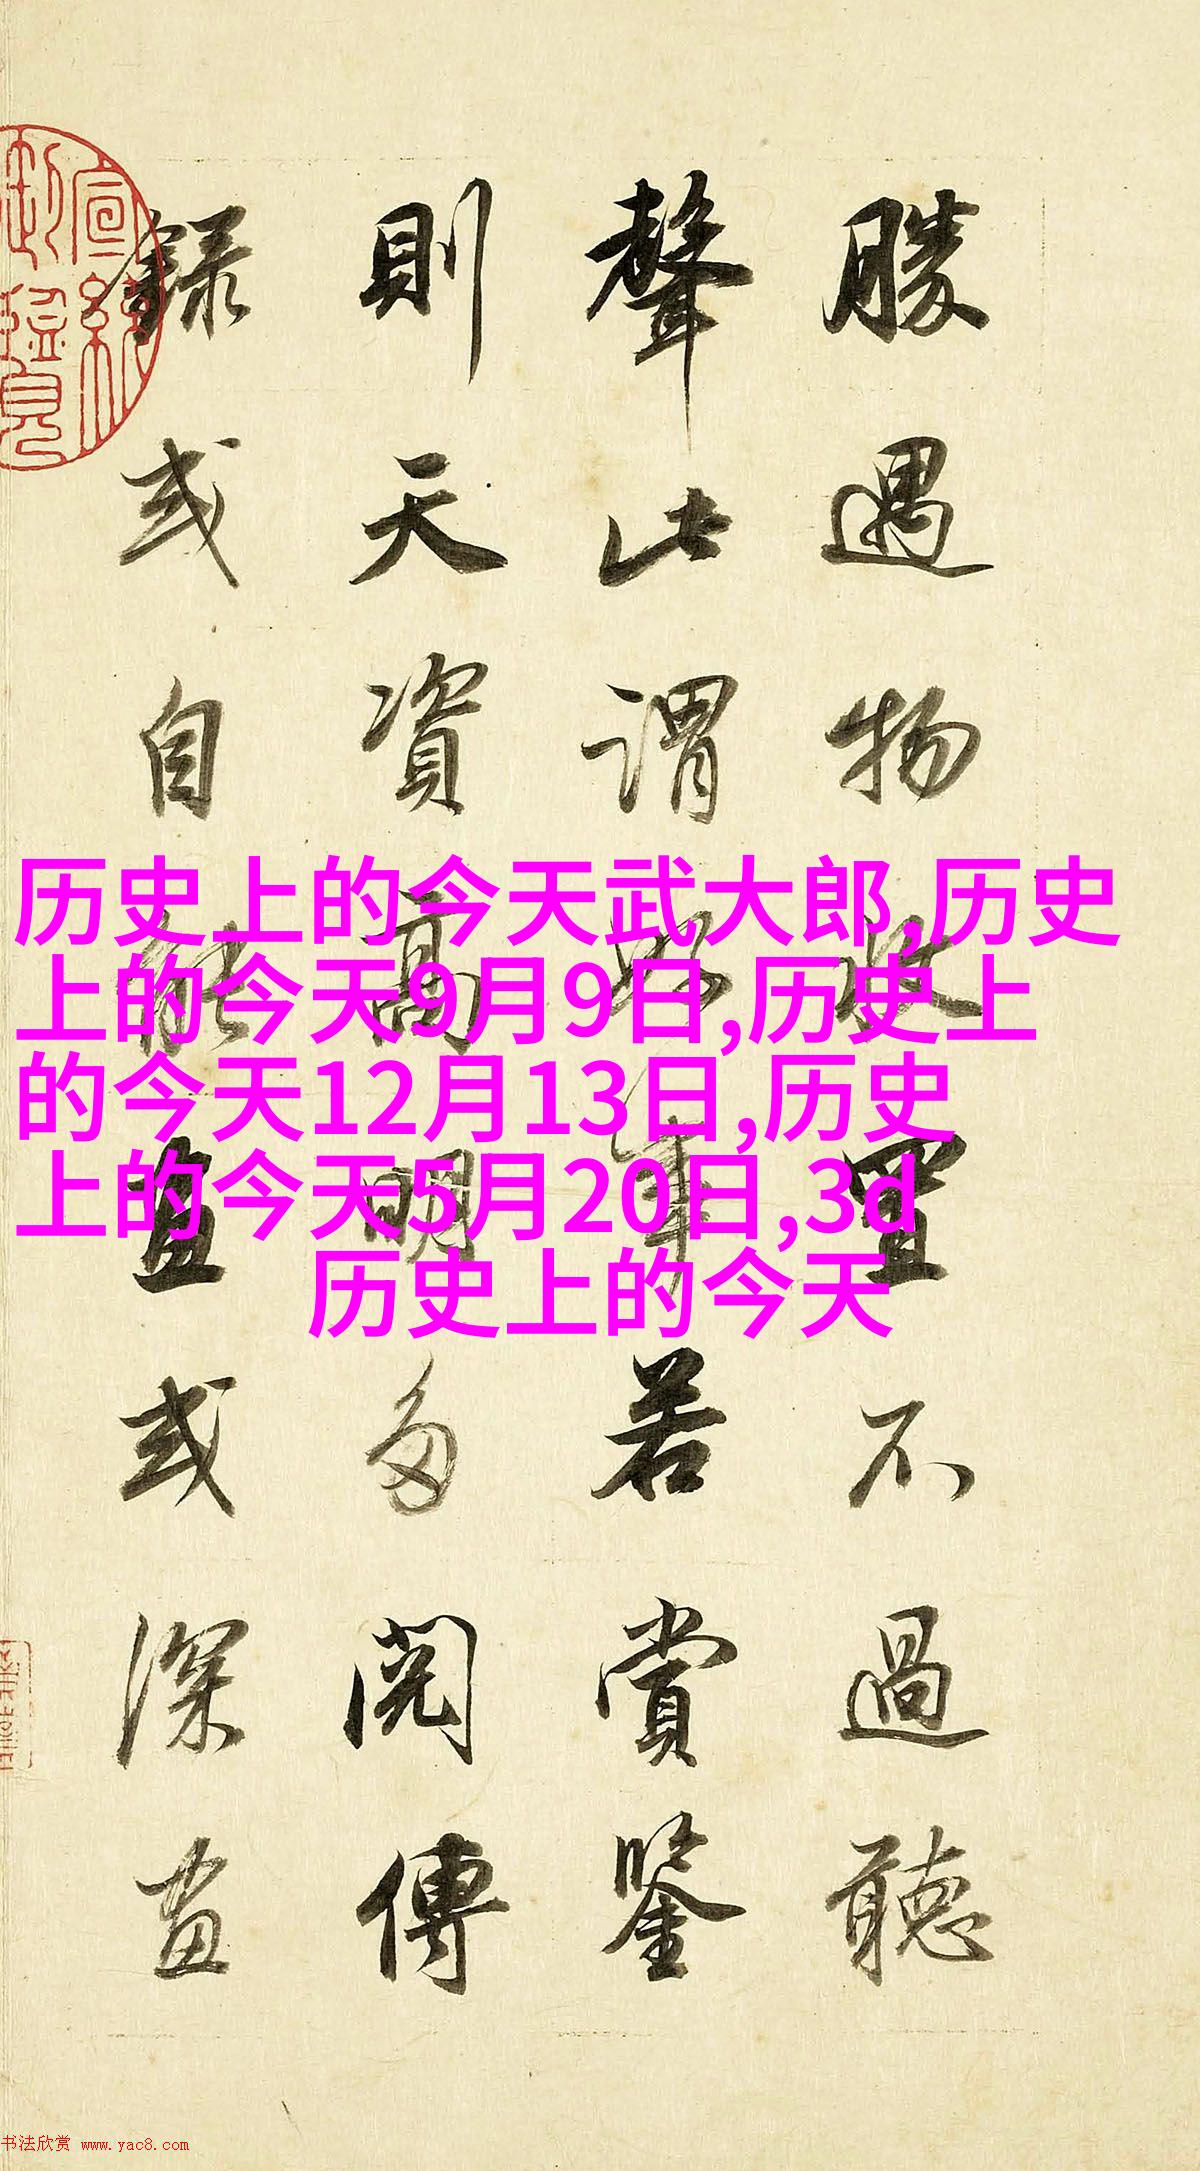 勝遇物收置不過聽
聲此謂好事若賞鑒
則天資高明多閱傳
錄或自能畫或深畫
宣統御覽
历史上的今天武大郎,历史
上的今天9月9日,历史上
的今天12月13日,历史
上的今天5月20日,3d
历史上的今天
书法欣赏 www.yac8.com